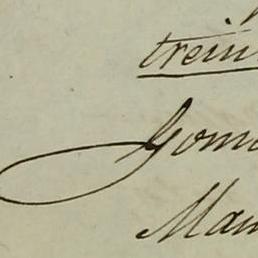 trein
Gom
Man